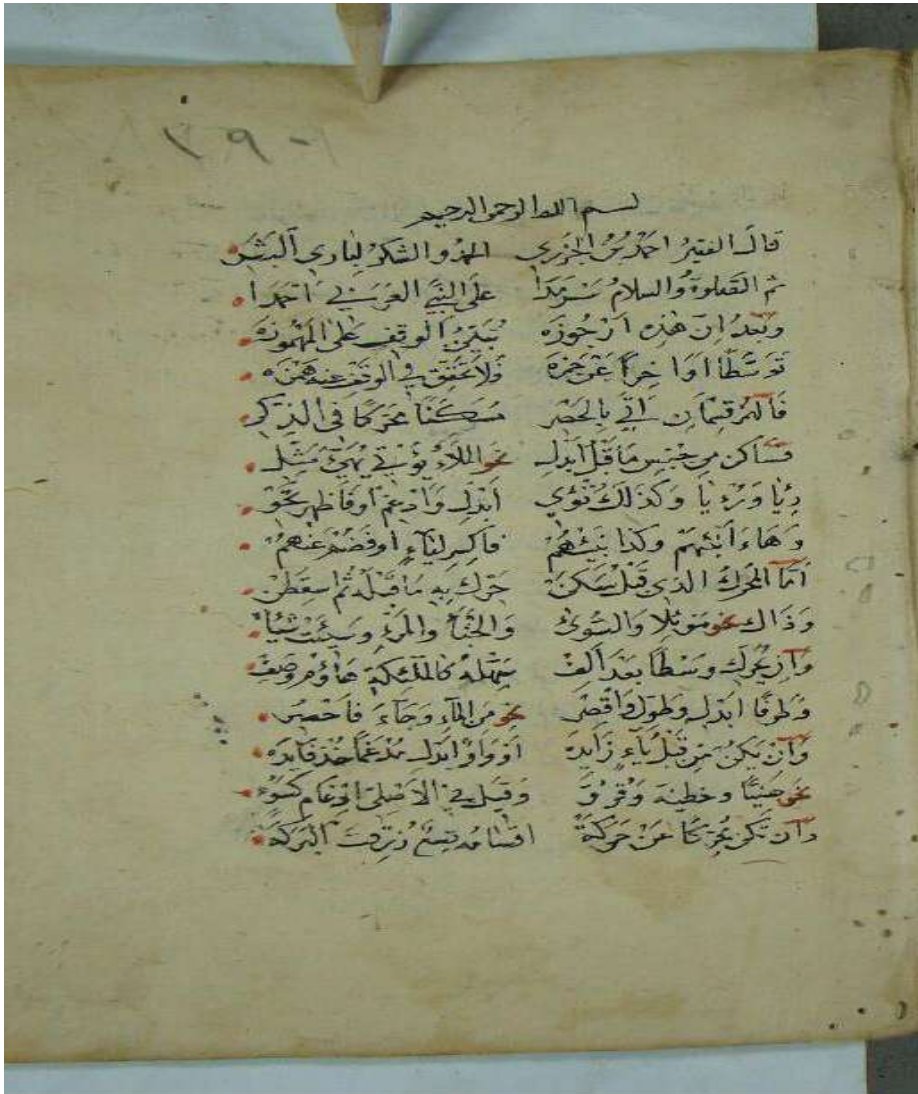 ١٣٩٠
بسم الله الرحمن الرحيم
قال الفقير احمد بن الجزري الحمد والشكر لباري البشر
ثم الصلوة والسلام سرمدا على النبي العربي احمدا
وبعد ان هذه ارجوزه تبين الوقف على المهموزه
توسطا او اخرا عن حمزه فلا تحقق في الوقف عنه همزه
فالهمز قسمان اتى بالحصر مسكنا محركا في الذكر
فساكن من جنس ما قبل ابدل نحو اللاء يؤتي يهيئ مثل
رئيا ورءيا وكذلك تؤوي ابدل وادغم او فاظهر نحو
وهاء انبئهم وكذا نبئهم فاكسر لياء او فضم عنهم
اما المحرك الذي قبل سكن حرك به ما قبله ثم اسقطن
وذاك نحو موئلا والسوئ والخبأ والمرء وسيئت شيأ
وان يحرك وسطا بعد الف سهله كالملئكة هاؤم وصف
وطرفا ابدل وطول واقصر نحو من الماء وجاء فاحصر
وان يكن من قبل ياء زايده او واو ابدل مدغما خذ فايده
نحو هنيئا وخطيئة وقروء وقيل في الاصلي ادغام كسوء
وان تكن محركا عن حركة اقسامه تسع رزقت البركة